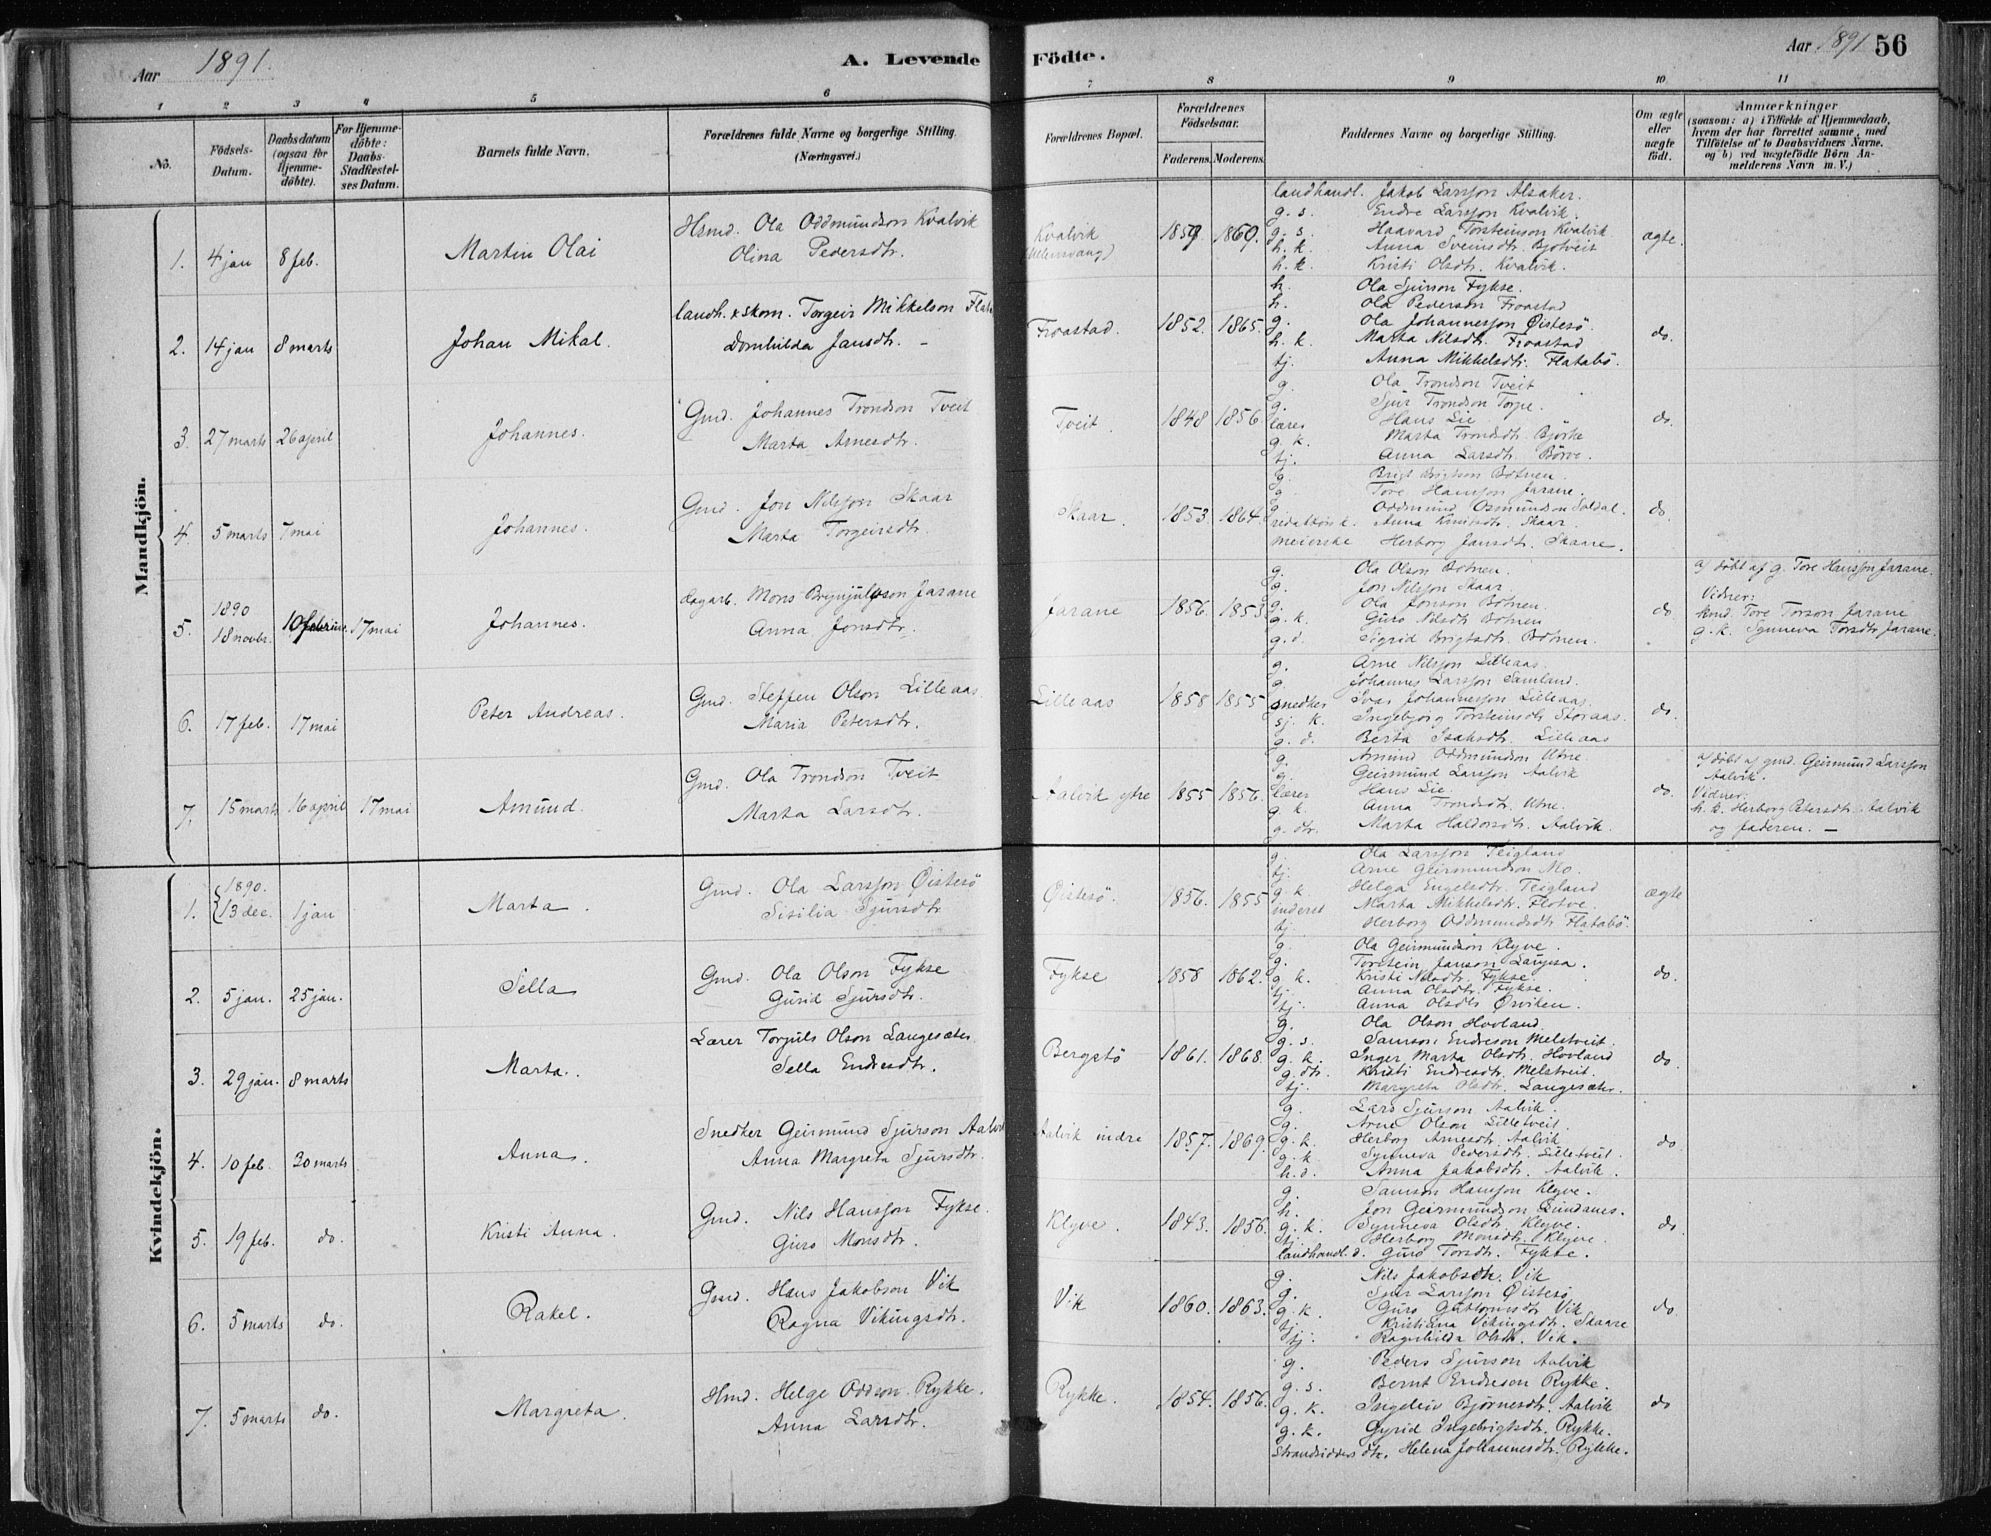 Aar 1891.
A. Levende Födte.
Aar 1891 56
1 2 3 4 5 6 7 8 9 10 11
No.
Födsels-Datum.
Daabsdatum (ogsaa for Hjemme-döbte).
For Hjemme-döbte: Daabs-Stadfæstel-ses Datum.
Barnets fulde Navn.
Forældrenes fulde Navne og borgerlige Stilling. (Næringsvei.)
Forældrenes Bopæl.
Forældrenes Födselsaar.
Faderens. Moderens.
Faddernes Navne og borgerlige Stilling.
Om ægte eller uægte födt.
Anmærkninger (saasom: a) i Tilfælde af Hjemmedaab, hvem der har forrettet samme, med Tilföielse af to Daabsvidners Navne. og b) ved uægtefödte Börn An-melderens Navn m. V.)
Mandkjön.
1. 4 jan 8 feb. Martin Olai
Hsmd. Ola Oddmundson Kvalvik
Olina Pedersdtr.
Kvalvik (Ullensvang) 1859 1860.
landhandl. Jakob Larsson Alsaker.
g. s. Endre Larsson Kvalvik.
g. s. Haavard Torsteinson Kvalvik
h. k. Anna Sveinsdtr. Bjotveit
h. k. Kristi Olsdtr. Kvalvik.
ægte.
2. 14 jan 8 marts Johan Mikal.
landh. x skom. Torgeir Mikkelson Flata
Domhilda Jansdtr. –
Froastad. 1852. 1865.
h. Ola Sjurson Fykse.
h. Ola Pederson Froastad
g. Ola Johannesson Öistesö.
h. k. Marta Nilsdtr. Froastad
tj. Anna Mikkelsdtr. Flatabö.
do.
3. 27 marts 26 april Johannes.
Gmd. Johannes Trondson Tveit
Marta Arnesdtr.
Tveit. 1848 1856
g. Ola Trondson Tveit
g. Sjur Trondson Torpe.
lærer Hans Lie
g. k. Marta Trondsdtr. Björke
tj. Anna Larsdtr. Börve.
do.
4. 5 marts 7 mai Johannes.
Gmd. Jon Nilsson Skaar
Marta Torgeirsdtr.
Skaar. 1853. 1864.
g. Brigt Brigtson Botnen.
g. Tore Hansson Jarane.
g. Oddmund Osmundson Soldal.
redaktörs k. Anna Knutsdtr. Skaar.
meierske Herborg Jansdtr. Skaare.
do.
5. 1890 18 novbr. 10 februar. 17 mai Johannes.
dagarb. Mons Brynjulfson Jarane
Anna Jonsdtr.
Jarane 1856. 1853.
g. Ola Olson Botnen.
g. Jon Nilsson Skaar
g. Ola Jonson Botnen.
g. k. Guro Nilsdtr Botnen
g. d. Sigrid Brigtsdtr. Botnen.
do
a/ döbt af g. Tore Hansson Jarane.
Vidner:
hmd. Tore Torson Jarane
g. k. Synneva Torsdtr Jarane.
6. 17 feb. 17 mai Peter Andreas.
Gmd. Steffen Olson Lilleaas.
Maria Petersdtr.
Lilleaas 1858 1855
g. Arne Nilsson Lilleaas.
g. Johannes Larsson Samland.
snedker Ivar Johannesson Lilleaas.
sj. k. Ingebjörg Torsteinsdtr Storaas.
g. d. Berta Isaksdtr. Lilleaas
do.
7. 15 marts 16 april 17 mai Amund.
Gmd. Ola Trondson Tveit
Marta Larsdtr.
Aalvik ytre 1855 1856.
g. Amund Oddmundson Utne
g. Geirmund Larsson Aalvik
lærer Hans Lie.
g k. Anna Trondsdtr. Utne.
g. dtr. Marta Haldorsdtr. Aalvik.
do.
a/ döbt af gmd. Geirmund Larsson
Aalvik.
Vidner:
h. k. Herborg Petersdtr. Aalvik
og faderen. –
Kvindekjön.
1. 1890. 13 dec. 1 jan Marta.
Gmd. Ola Larsson Öistesö
Sisilia Sjursdtr
Öistesö. 1856. 1855
g. Ola Larsson Teigland
tj. Arne Geirmundson Mo.
g. k. Helga Engelsdtr. Teigland
inderst Marta Mikkelsdtr. Flotve.
tj. Herborg Oddmundsdtr Flatabö.
ægte
2. 5 jan. 25 jan. Sella
Gmd. Ola Olson Fykse
Gurid Sjursdtr.
Fykse 1858 1862.
g. Ola Geirmundson Klyve.
g. Torstein Janson Laupsa.
g k. Kristi Nilsdtr. Fykse
tj. Anna Olsdtr. Fykse.
tj. Anna Olsdtr Örviken.
do.
3. 29 jan. 8 marts Marta.
Lærer Torjuls Olson Langesæter
Sella Endresdtr.
Bergstö 1861. 1868.
g. Ola Olson Hovland.
g. s. Samson Endreson Melstveit.
g. k. Inger Marta Olsdtr. Hovland
g. dtr. Kristi Endresdtr. Melstveit.
tj. Margreta Olsdtr. Langesæter.
do
4. 10 feb. 30 marts Anna.
Snedker Geirmund Sjurson Aalvik
Anna Margreta Sjursdtr.
Aalvik indre 1857. 1869.
g. Lars Sjurson Aalvik.
g. Arne Olson Lilletveit.
g. k. Herborg Arnesdtr. Aalvik
g. k Synneva Pedersdtr. Lilletveit.
h. d. Anna Jakobsdtr. Aalvik.
do
5. 19 feb. do. Kristi Anna.
Gmd. Nils Hansson Fykse.
Guro Monsdtr.
Klyve. 1843. 1856.
g. Samson Hansson Klyve.
h. Jon Geirmundson Lundanes.
g. k. Synneva Olsdtr. Klyve.
tj. Herborg Monsdtr. Klyve.
landhandl. d. Guro Torsdtr. Fykse.
do
6. 5 marts do. Rakel.
Gmd. Hans Jakobson Vik
Ragna Vikingsdtr.
Vik 1860. 1863.
g. Nils Jakobsen. Vik
g. Sjur Larsson Öistesö
g. k. Guro Guttormsdtr Vik
tj. Kristiana Vikingsdtr. Skaare
tj. Ragnhilda Olsdtr. Vik.
do.
7. 5 marts do. Margreta.
Hmd. Helge Oddson Rykke.
Anna Larsdtr.
Rykke. 1854. 1856.
g. Peders Sjurson Aalvik
g. s. Bernt Endreson Rykke.
g. k. Ingeleiv Björnesdtr. Aalvik
g. k. Gyrid Ingebrigtsdtr. Rykke.
Strandsidders dtr. Helena Johannesdtr. Rykke.
do